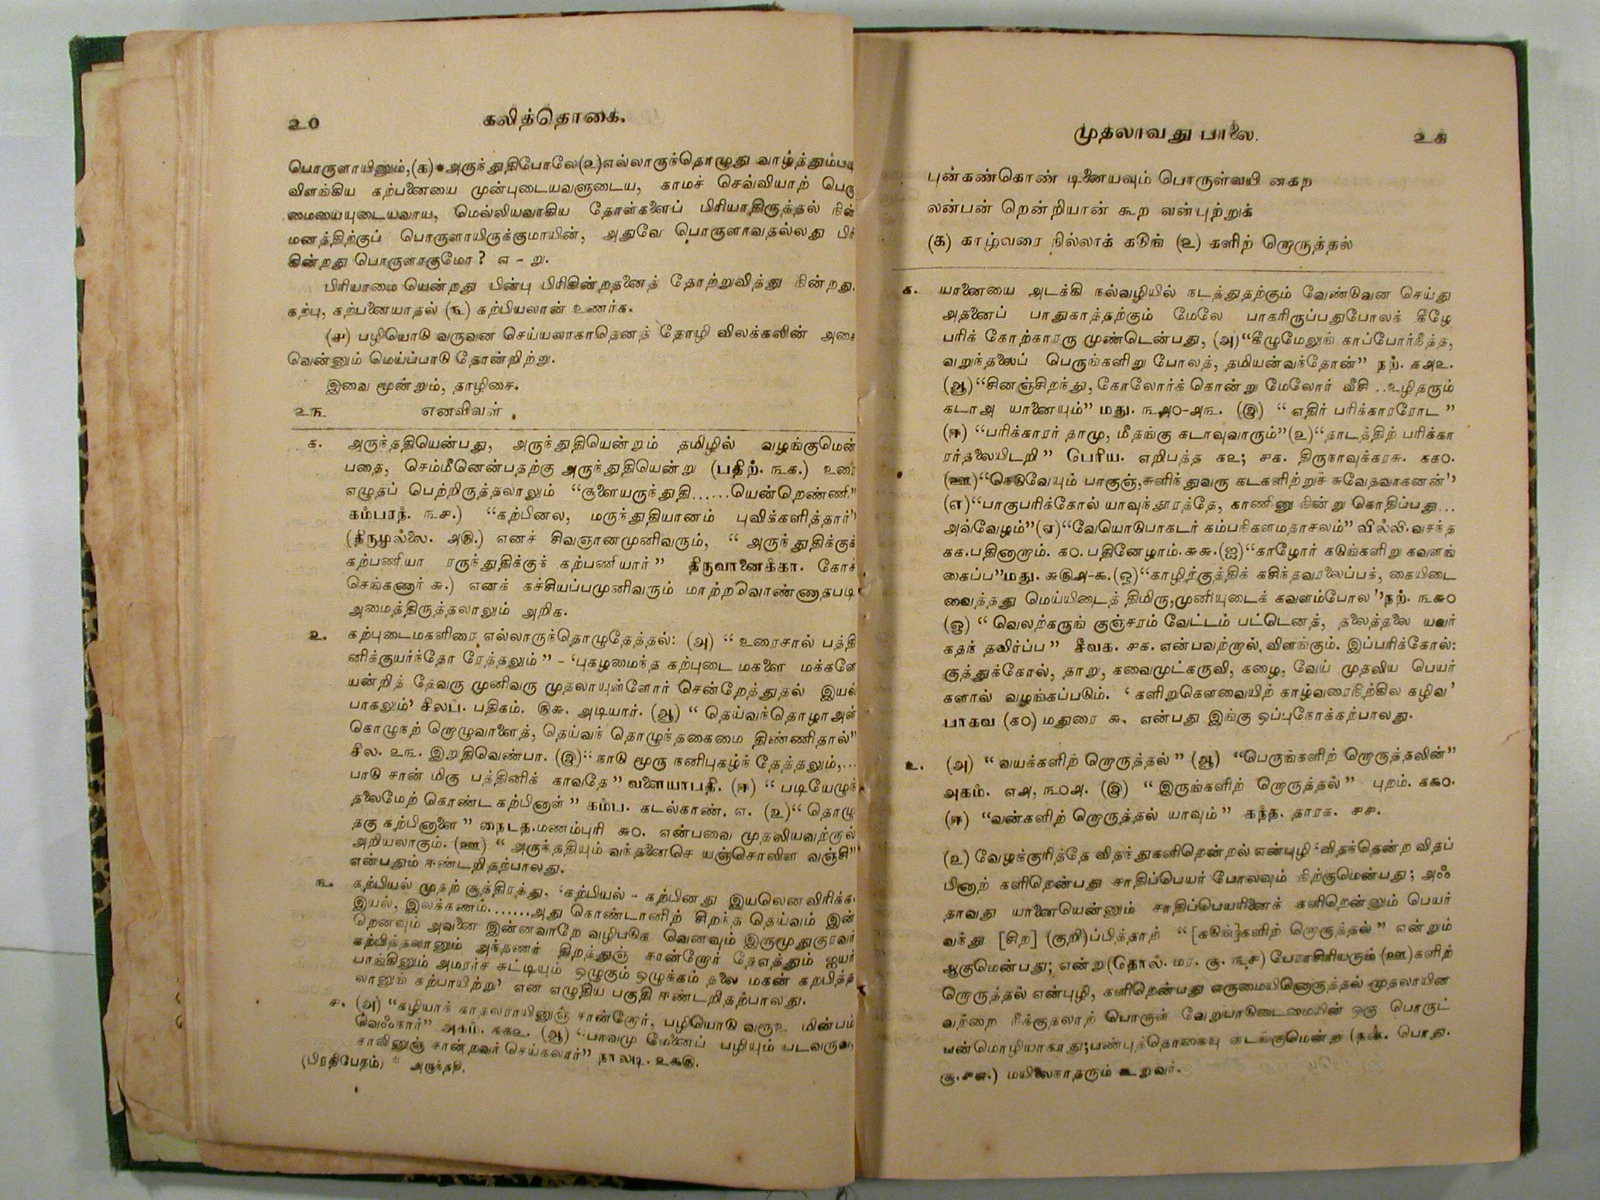 ௨௦
கலித்தொகை.
பொருளாயினும்,(க)*அருந்துதிபோலே(உ)எல்லாருந்தொழுது வாழ்த்தும்படி
விளங்கிய கற்பனையை முன்புடையவளுடைய, காமச் செவ்வியாற் பெரு
மையையுடையவாய, மெல்லியவாகிய தோள்களைப் பிரியாதிருத்தல் நின்
மனத்திற்குப் பொருளாயிருக்குமாயின், அதுவே பொருளாவதல்லது பிரி
கின்றது பொருளாகுமோ? எ - று.
பிரியாமை யென்றது பின்பு பிரிகின்றதனைத் தோற்றுவித்து நின்றது.
கற்பு, கற்பனையாதல் (௩) கற்பியலான் உணர்க.
(௪) பழியொடு வருவன செய்யலாகாதெனத் தோழி விலக்கலின் அசை
வென்னும் மெய்ப்பாடு தோன்றிற்று.
இவை மூன்றும், தாழிசை.
௨௩ எனவிவள்
க. அருந்ததியென்பது, அருந்துதியென்றும் தமிழில் வழங்குமென்
பதை, செம்மீனென்பதற்கு அருந்துதியென்று (பதிற். ௩க.) உரை
எழுதப் பெற்றிருத்தலாலும் “குளையருந்துதி......யென்றெண்ணி”
கம்பரந். ௩௪.) “கற்பினல, மருந்துதியானம் புவிக்களித்தார்”
(திருமுல்லை. அரு.) எனச் சிவஞானமுனிவரும், “ அருந்துதிக்குக்
கற்பணியா ரருந்துதிக்குக் கற்பணியார்” திருவானைக்கா. கோச்
செங்கணார் சு.) எனக் கச்சியப்பமுனிவரும் மாற்றவொண்ணாதபடி
அமைத்திருத்தலாலும் அறிக.
உ. கற்புடைமகளிரை எல்லாருந்தொழுதேத்தல்: (அ) “ உரைசால் பத்தி
னிக்குயர்ந்தோ ரேத்தலும்” - ‘புகழமைந்த கற்புடை மகளை மக்களே
யன்றித் தேவரு முனிவரு முதலாயுள்ளோர் சென்றேத்துதல் இயல்
பாகலும்’ சிலப். பதிகம். ௫௬. அடியார். (ஆ) “ தெய்வந்தொழாஅள்
கொழுநற் றொழுவாளைத், தெய்வந் தொழுந்தகைமை திண்ணிதால்”
சில. ௨௩. இறுதிவெண்பா. (இ)“காடு மூரு நனிபுகழ்ந் தேத்தலும்,...
பாடு சான் மிகு பத்தினிக் காவதே” வளையாபதி. (ஈ) “ படியேழுந்
தலைமேற் கொண்ட கற்பினாள்” கம்ப. கடல்காண். எ. (உ)“ தொழு
தகு கற்பினாளை” நைடத.மணம்புரி ௬௦. என்பவை முதலியவற்றால்
அறியலாகும். (ஊ) “ அருந்ததியும் வந்தனைசெ யஞ்சொலிள வஞ்சி”
என்பதும் ஈண்டறிதற்பாலது.
௩. கற்பியல் முதற் சூத்திரத்து, ‘கற்பியல் - கற்பினது இயலெனவிரிக்க.
இயல், இலக்கணம்.......அது கொண்டானிற் சிறந்த தெய்வம் இன்
றெனவும் அவனை இன்னவாறே வழிபடுக வெனவும் இருமுதுகுரவர்
கற்பித்தலானும் அந்தணர் திறத்துஞ் சான்றோர் தேஎத்தும் ஐயர்
பாங்கினும் அமரர்ச் சுட்டியும் ஒழுகும் ஒழுக்கம் தலை மகன் கற்பித்த
லானுங் கற்பாயிற்று’ என எழுதிய பகுதி ஈண்டறிதற்பாலது.
௪. (அ) “கழியாக் காதலராயினுஞ் சான்றோர், பழியொடு வரூஉ மின்பம்
வெஃகார்” அகம். ௧௧௨. (ஆ) “பாவமு மேனைப் பழியும் படவருவ,
சாயினுஞ் சான்றவர் செய்கலார்” நாலடி. ௨௯௫.
(பிரதிபேதம்) * அருந்ததி.
முதலாவது பாலை.
௨௧
புன்கண்கொண் டினையவும் பொருள்வயி னகற
லன்பன் றென்றியான் கூற வன்புற்றுக்
(க) காழ்வரை நில்லாக் கடுங் (உ) களிற் றொருத்தல்
க. யானையை அடக்கி நல்வழியில் நடத்துதற்கும் வேண்டுவன செய்து
அதனைப் பாதுகாத்தற்கும் மேலே பாகரிருப்பதுபோலக் கீழே
பரிக் கோற்காரரு முண்டென்பது, (அ)“கீழுமேலுங் காப்போர்நீத்த,
வறுந்தலைப் பெருங்களிறு போலத், தமியன்வந்தோன்” நற். ௧௮௨.
(ஆ)“சினஞ்சிறந்து, கோலோர்க் கொன்று மேலோர் வீசி ..உழிதரும்
கடாஅ யானையும்” மது. ௩௮௦-௮௩. (இ) “ எதிர் பரிக்காரரோட ”
(ஈ) “பரிக்காரர் தாமு, மீதங்கு கடாவுவாரும்”(உ)“தாடத்திற் பரிக்கா
ரர்தலையிடறி” பெரிய. எறிபத்த ௧௨; ௪௧. திருநாவுக்கரசு. ௧௧௦.
(ஊ)“செடுவேயும் பாகுஞ்,சுளிந்துவரு கடகளிற்றுச் சுவேதவாகனன்”
(எ)“பாகுபரிக்கோல் யாவுந்தூரத்தே, காணினு நின்று கொதிப்பது...
அவ்வேழம்”(ஏ)“வேயொடுபாகடர் கம்பரிகளமதாசலம்” வில்லி.வசந்த
௧௧.பதினாறாம். ௧௦. பதினேழாம். ௬௬.(ஐ)“காழோர் கடுங்களிறு கவளங்
கைப்ப”மது. ௬௫௮-௯.(ஒ)“காழிற்குத்திக் கசிந்தவரலைப்பக், கையிடை
வைத்தது மெய்யிடைத் திமிரு,முனியுடைக் கவளம்போல”நற். ௩௬௦
(ஓ) “ வெலற்கருங் குஞ்சரம் வேட்டம் பட்டெனத், தலைத்தலை யவர்
கதந் தவிர்ப்ப” சீவக. ௪௧. என்பவற்றால், விளங்கும். இப்பரிக்கோல்:
குத்துக்கோல், தாறு, கவைமுட்கருவி, கழை, வேய் முதலிய பெயர்
களால் வழங்கப்படும். ‘ களிறுகௌவையிற் காழ்வரைநிற்கில கழிவ’
பாகவ (௧௦) மதுரை ௬. என்பது இங்கு ஒப்புநோக்கற்பாலது.
உ. (அ) “ வயக்களிற் றொருத்தல்” (ஆ) “பெருங்களிற் றொருத்தலின்”
அகம். ௭௮, ௩௦௮. (இ) “ இருங்களிற் றொருத்தல்” புறம். ௧௯௦.
(ஈ) “வன்களிற் றொருத்தல் யாவும்” கந்த. தாரக. ௪௪.
(உ) வேழக்குரித்தே விதந்துகளிறென்றல் என்புழி ‘விதந்தென்ற விதப்
பினாற் களிறென்பது சாதிப்பெயர் போலவும் நிற்குமென்பது; அஃ
தாவது யானையென்னும் சாதிப்பெயரினைக் களிறென்னும் பெயர்
வந்து [சிற] (குறி)ப்பித்தாற் “[கடுங்]களிற் றொருத்தல்” என்றும்
ஆகுமென்பது; என்று(தொல். மர. சூ. ௩௪) பேராசிரியரும் (ஊ)களிற்
றொருத்தல் என்புழி, களிறென்பது எருமையினொருத்தல் முதலாயின
வற்றை நீக்குதலாற் பொருள் வேறுபாடுடைமையின் ஒரு பொருட்
பன்மொழியாகாது;பண்புத்தொகையு ளடங்குமென்று (நன். பொது.
சூ.௪௭.) மயிலைநாதரும் கூறுவர்.